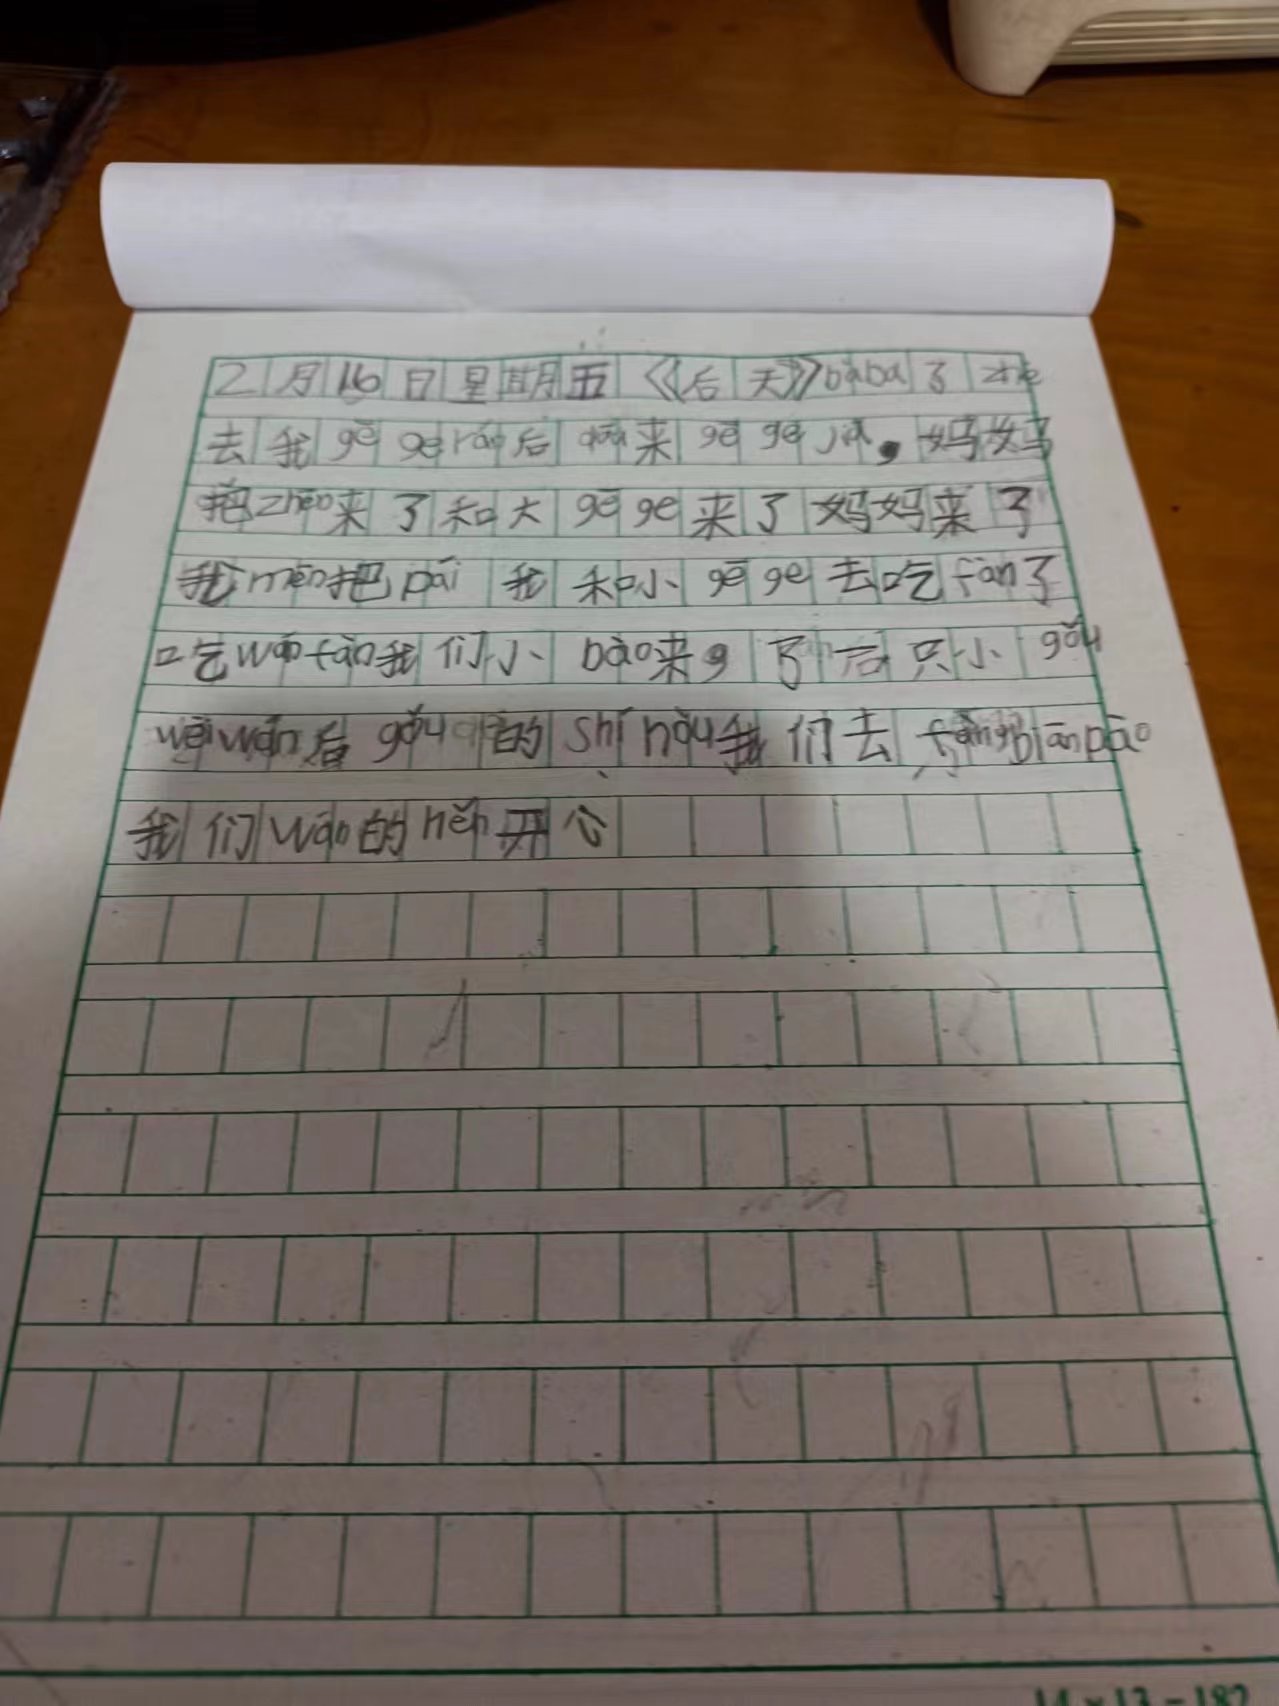 2月16日星期五《后天》bàba了
去我gēge rán后 来gēge jiā,妈妈
把zhěn来了和大gēge来了妈妈来了
我men把pái我和小gēge去吃fàn了
吃wǎn fàn我们小bǎo来9了后只小gǒu
wèi wán后gǒu的shí hòu我们去fàng biān pào
我们wán的hěn开心
14×13=182